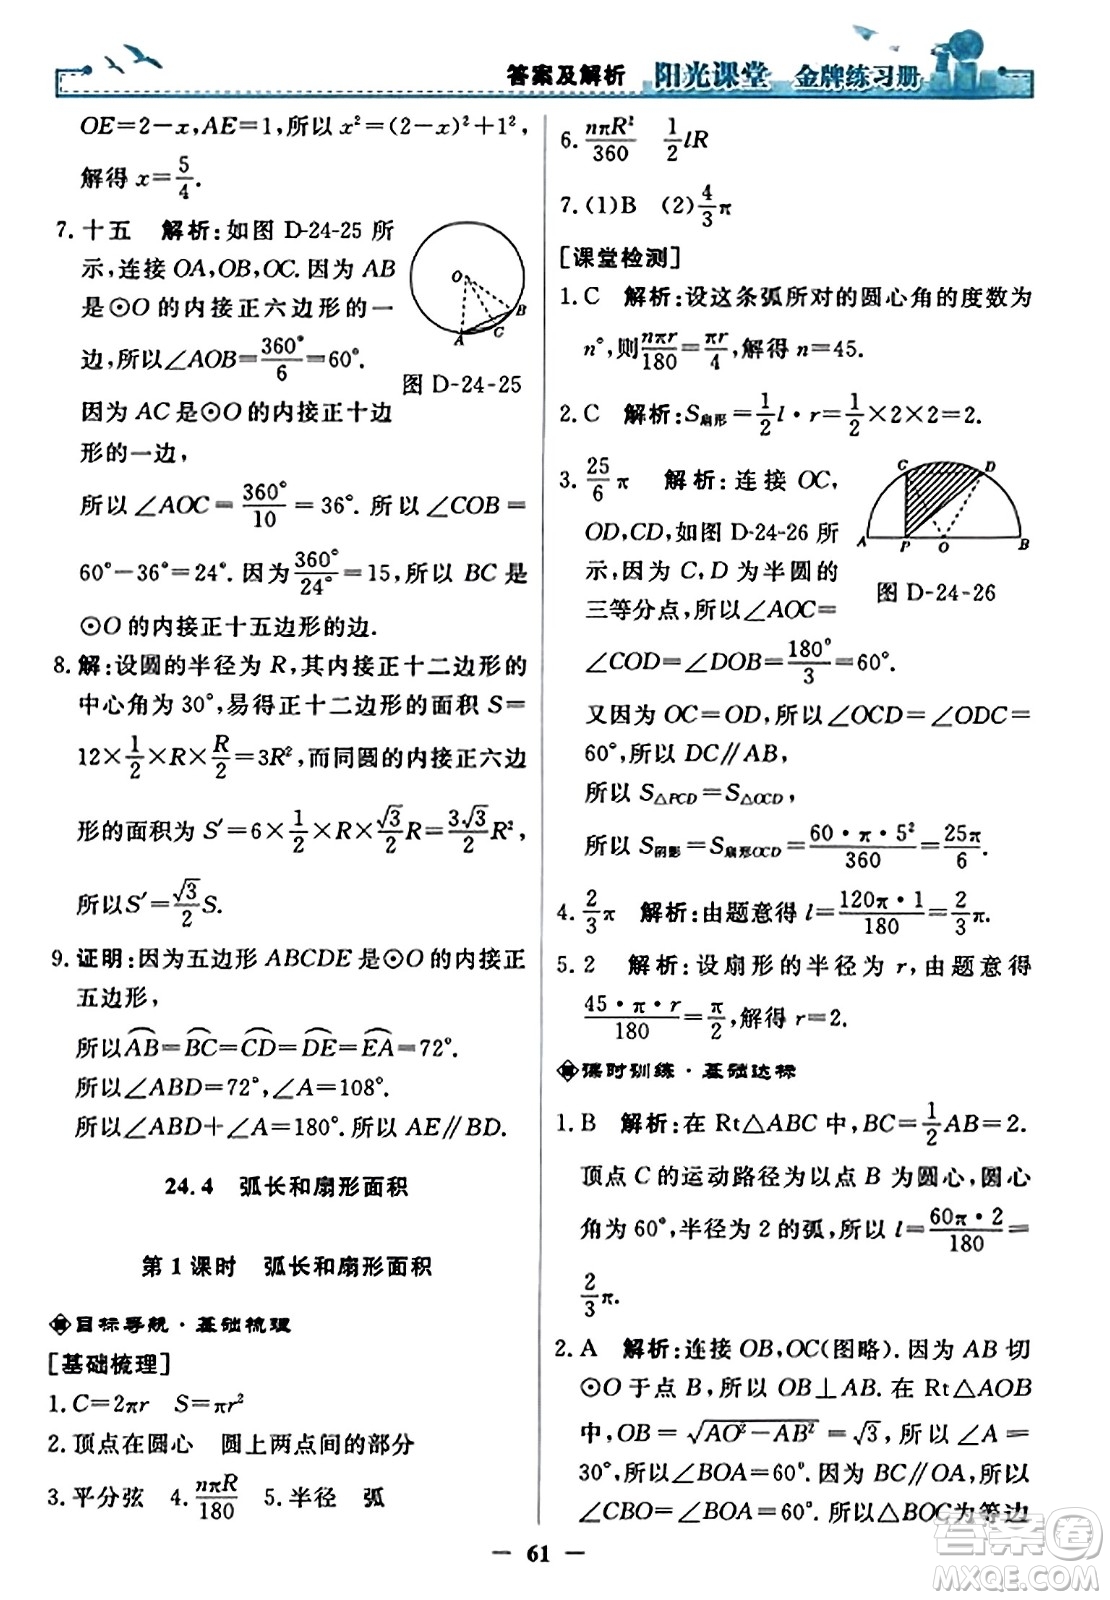 答案及解析 阳光课堂 金牌练习册
OE=2-x,AE=1,所以 x²=(2-x)²+1²,
解得 x=5/4.
7. 十五 解析:如图 D-24-25 所
示,连接 OA,OB,OC. 因为 AB
是⊙O 的内接正六边形的一
边,所以∠AOB=360°/6=60°.
因为 AC 是⊙O 的内接正十边
形的一边,
所以∠AOC=360°/10=36°. 所以∠COB=
60°-36°=24°. 因为360°/24°=15,所以 BC 是
⊙O 的内接正十五边形的边.
O
B
C
A
图 D-24-25
8. 解:设圆的半径为 R,其内接正十二边形的
中心角为 30°,易得正十二边形的面积 S=
12×1/2×R×R/2=3R²,而同圆的内接正六边
形的面积为 S′=6×1/2×R×√3/2R=3√3/2R²,
所以S′=√3/2S.
9. 证明:因为五边形 ABCDE 是⊙O 的内接正
五边形,
所以A͡B=B͡C=C͡D=D͡E=E͡A=72°.
所以∠ABD=72°,∠A=108°.
所以∠ABD+∠A=180°. 所以 AE∥BD.
24.4 弧长和扇形面积
第 1 课时 弧长和扇形面积
目标导航·基础梳理
[基础梳理]
1. C=2πr S=πr²
2. 顶点在圆心 圆上两点间的部分
3. 平分弦 4. nπR/180 5. 半径 弧
6. nπR²/360 1/2lR
7. (1)B (2)4/3π
[课堂检测]
1. C 解析:设这条弧所对的圆心角的度数为
n°,则nπr/180=πr/4,解得 n=45.
2. C 解析:S扇形=1/2l·r=1/2×2×2=2.
3. 25/6π 解析:连接 OC,
OD,CD,如图 D-24-26 所
示,因为 C,D 为半圆的
三等分点,所以∠AOC=
∠COD=∠DOB=180°/3=60°.
又因为 OC=OD,所以∠OCD=∠ODC=
60°,所以 DC∥AB,
所以 S△PCD=S△OCD,
所以 S阴影=S扇形OCD=60·π·5²/360=25π/6.
C D
A P O B
图 D-24-26
4. 2/3π 解析:由题意得 l=120π·1/180=2/3π.
5. 2 解析:设扇形的半径为 r,由题意得
45·π·r/180=π/2,解得 r=2.
课时训练·基础达标
1. B 解析:在 Rt△ABC 中,BC=1/2AB=2.
顶点 C 的运动路径为以点 B 为圆心,圆心
角为 60°,半径为 2 的弧,所以 l=60π·2/180=
2/3π.
2. A 解析:连接 OB,OC(图略). 因为 AB 切
⊙O 于点 B,所以 OB⊥AB. 在 Rt△AOB
中,OB=√(AO²-AB²)=√3,所以∠A=
30°,所以∠BOA=60°. 因为 BC∥OA,所以
∠CBO=∠BOA=60°. 所以△BOC为等边
— 61 —
答案卷
MXQE.COM